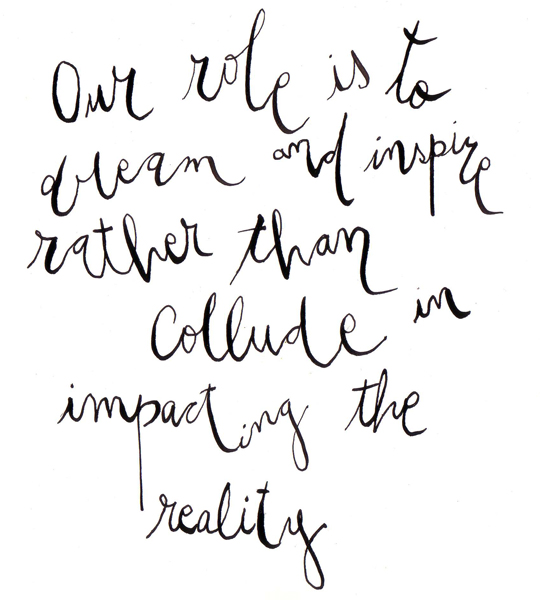 Our role is to
dream and inspire
rather than
Collude in
impacting the
reality